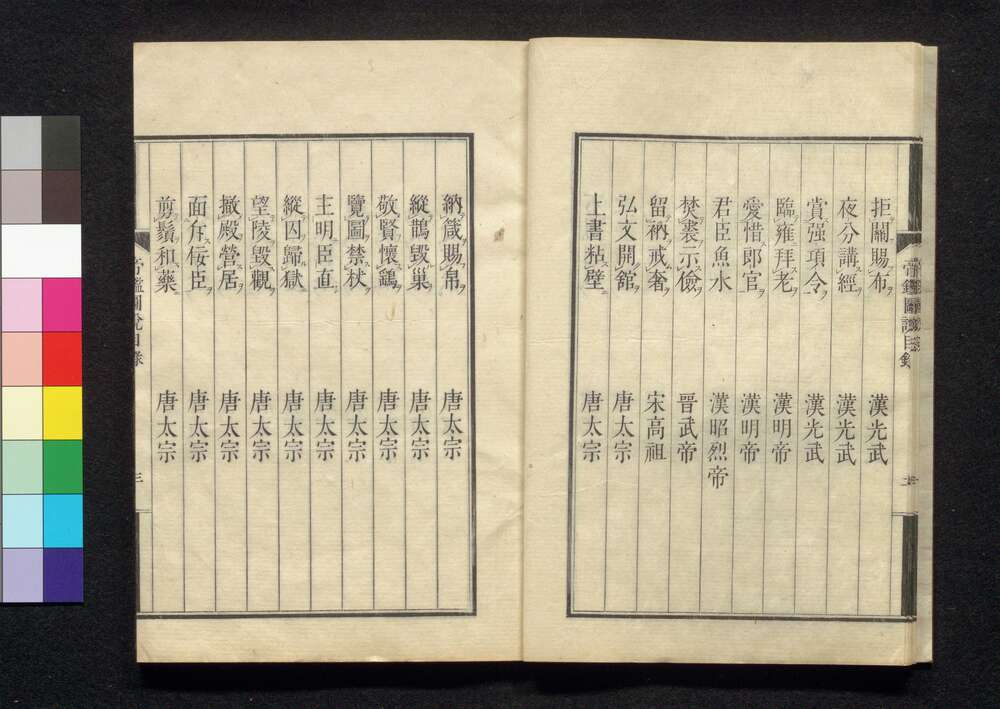 拒關賜布 漢光武
夜分講經 漢光武
賞强項令 漢光武
臨雍拜老 漢明帝
愛惜郎官 漢明帝
君臣魚水 漢昭烈帝
焚裘示儉 晉武帝
留衲戒奢 宋高祖
弘文開館 唐太宗
上書粘壁 唐太宗
納箴賜帛 唐太宗
縱鵲毀巢 唐太宗
敬賢懷鷂 唐太宗
覽圖禁杖 唐太宗
主明臣直 唐太宗
縱囚歸獄 唐太宗
望陵毀觀 唐太宗
撤殿營居 唐太宗
面斥佞臣 唐太宗
剪鬚和藥 唐太宗
帝鑑圖說目錄 三